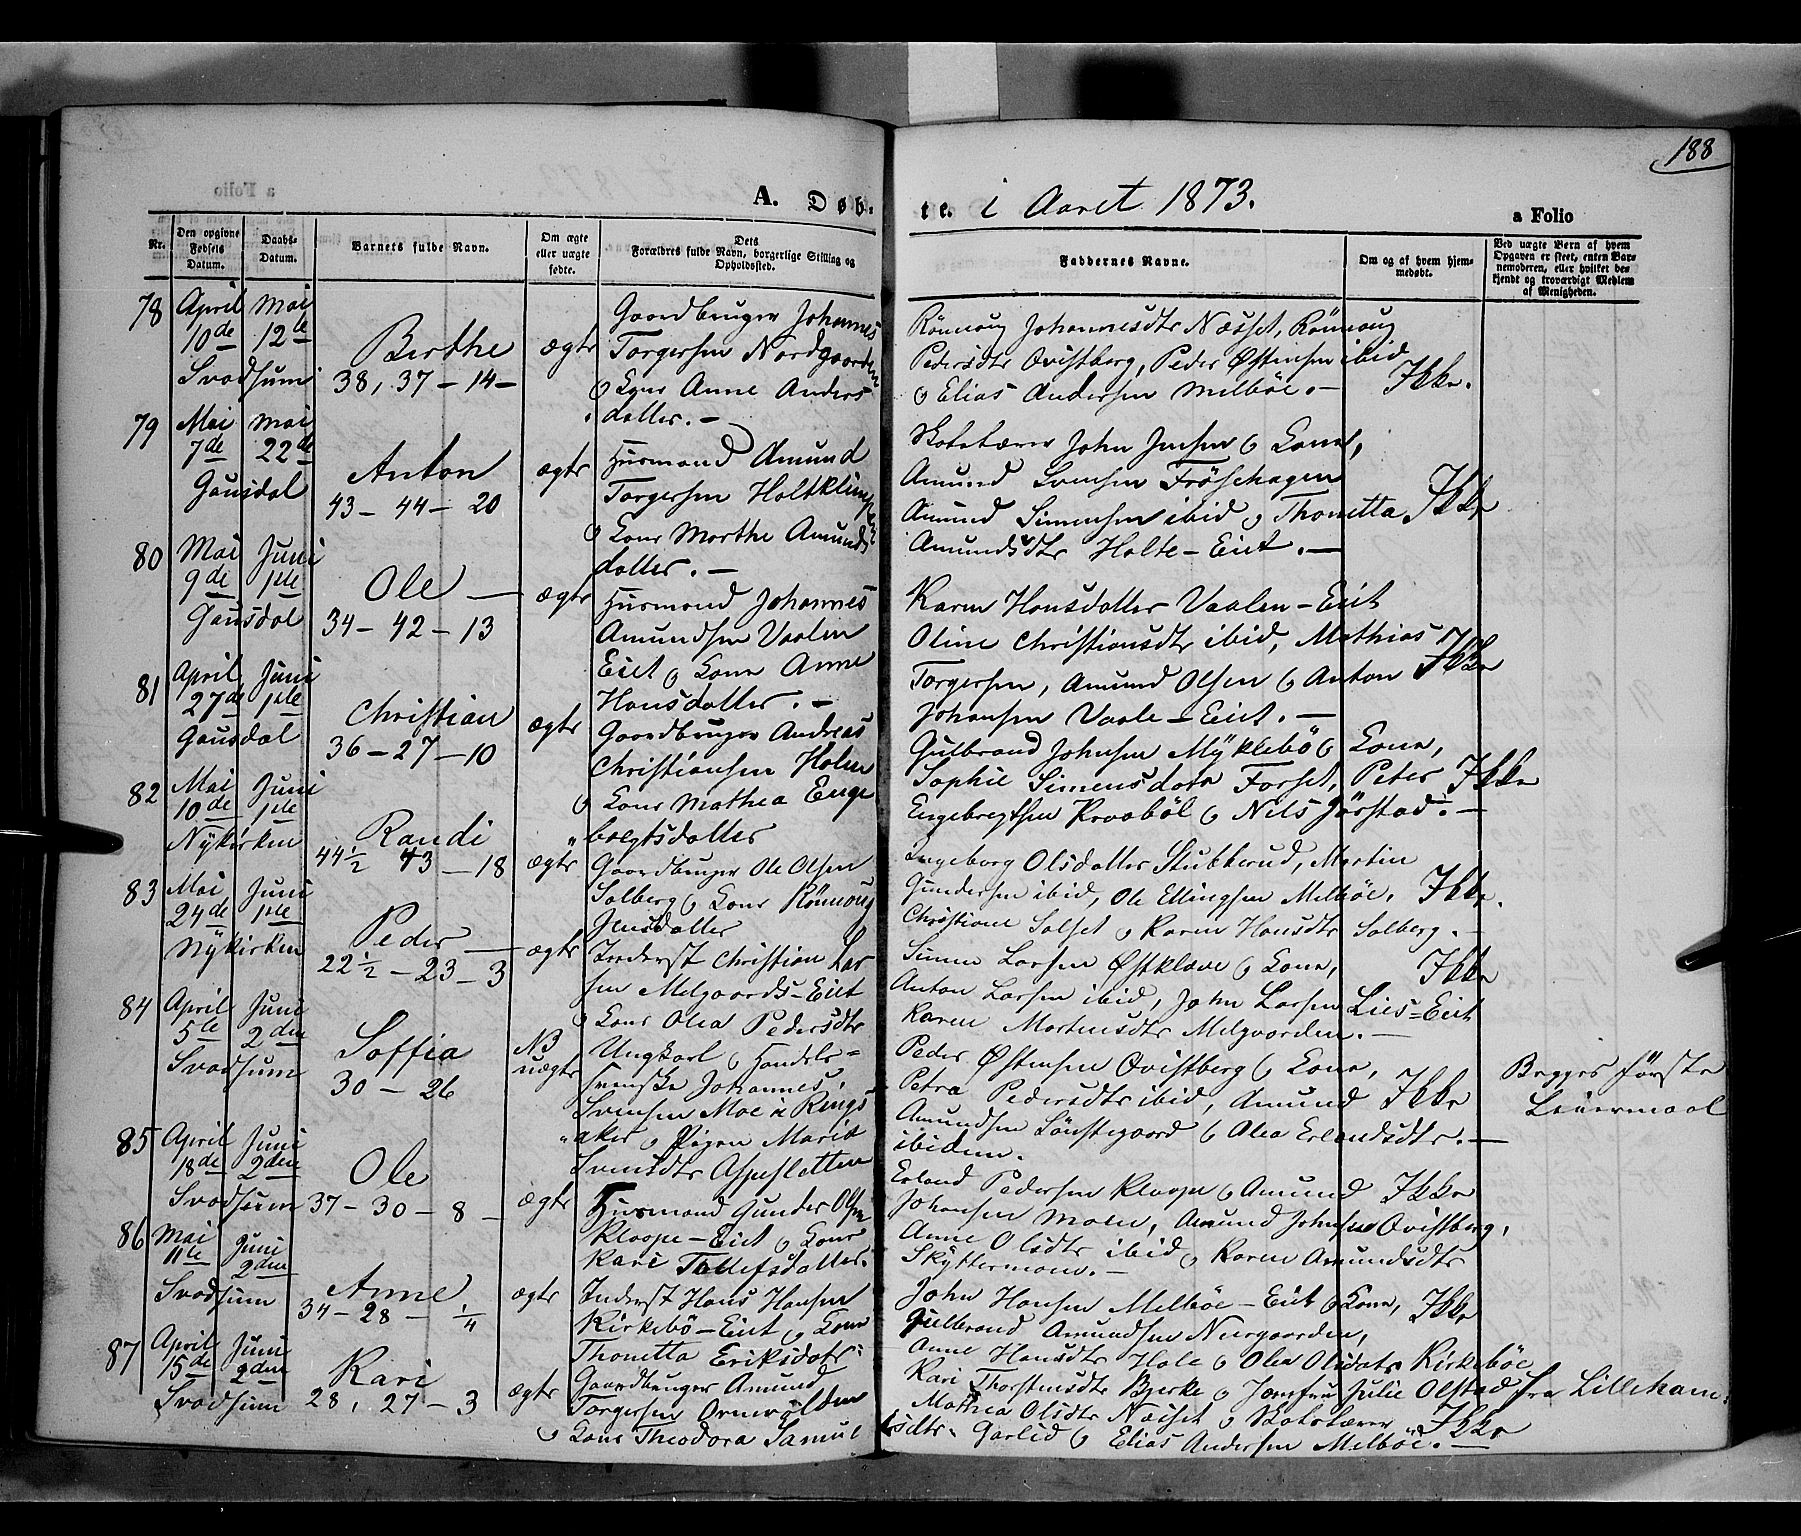 188
A. Døb-
te. i Aaret 1873.
a Folio
Nr.
Den opgivne Fødsels Datum.
Daabs-Datum.
Barnets fulde Navn.
Om ægte eller uægte fødte.
Dets Forældres fulde Navn, borgerlige Stilling og Opholdssted.
Faddernes Navne.
Om og af hvem hjemmedøbt.
Ved uægte Børn af hvem Opgaven er skeet, enten Barnemoderen, eller hvilket bekjendt og troværdigt Medlem af Menigheden.
78 April 10de Mai 12te
Svadsum
Berthe
38, 37 - 14 -
ægte
Gaardbruger Johannes
Torgersen Nordgaarden
o Kone Anne Anders
datter. -
Rönnoug Johannesdtr Næsset, Rönnoug
Pedersdtr Qvistberg, Peder Østensen ibid
o Elias Andersen Melböe. -
Ikke.
79 Mai 7de Mai 22de
Gausdal
Anton
43 - 44 - 20
ægte
Husmand Amund
Torgersen Holtklingen
o Kone Marthe Amunds
datter. -
Skolelærer John Jensen o Kone,
Amund Svensen Fröisehagen
Amund Simensen ibid o Thonetta
Amundsdtr Holte-Eiet. -
Ikke
80 Mai 9de Juni 1ste
Gausdal
Ole -
34 - 42 - 13
ægte
Husmand Johannes
Amundsen Vaalen
Eiet o Kone Anne
Hansdatter. -
Karen Hansdatter Vaalen-Eiet
Oline Christiansdtr ibid, Mathias
Torgersen, Amund Olsen o Anton
Johansen Vaale-Eiet. -
Ikke
81 April 27de Juni 1ste
Gausdal
Christian
36 - 27 - 10
ægte
Gaardbruger Andreas
Christiansen Holen
o Kone Mathea Enge
bregtsdatter
Gulbrand Johnsen Myklebö o Kone,
Sophie Simensdatr Forset, Peter
Engebregtsen Praaböl o Nils Jörstad. -
Ikke
82 Mai 10de Juni 1ste
Nykirken
Randi
44½ 43 - 18
ægte
Gaardbruger Ole Olsen
Solberg o Kone Rönnoug
Jensdatter
Ingeborg Olsdatter Stubberud, Martin
Gundersen ibid, Ole Ellingsen Melböe,
Christiane Solset o Karen Hansdtr Solberg. -
Ikke.
83 Mai 24de Juni 1ste
Nykirken
Peder -
22½ - 23 - 3
ægte
Inderst Christian Lar
sen Melgaards-Eiet
o Kone Olea Pedersdtr
Simen Larsen Østklæve o Kone,
Anton Larsen ibid, John Larsen Lies-Eiet
Karen Martensdtr Melgaarden. -
Ikke
84 April 5te Juni 2den
Svadsum
Soffia
30 - 26
NB
uægte
Ungkarl o Handels-
svenske Johannes
Svensen Moe i Rings
aker o Pigen Marit
Svensdtr Aspesletten
Peder Østensen Qvistberg o Kone,
Petra Pedersdtr ibid, Amund
Amundsen Lönstegaard o Olea Erlandsdtr. -
ibidem.
Ikke
Begges første
Leiermaal
85 April 18de Juni 2den
Svadsum
Ole
37 - 30 - 8 -
ægte
Husmand Gunder Olsen
Kloppe-Eiet o Kone
Kari Tollefsdatter.
Erland Pedersen Kloppe o Amund
Johansen Moen, Amund Johnsen Qvistberg,
Anne Olsdtr ibid o Karen Amundsdtr
Skyttermoen. -
Ikke
86 Mai 11te Juni 2den
Svadsum
Anne
34 - 28 - ¼
ægte
Inderst Hans Hansen
Kirkebö-Eiet o Kone
Thonetta Eriksdatr.
John Hansen Melböe-Eiet o Kone,
Gulbrand Amundsen Nergaarden,
Anne Hansdtr Hole o Olea Olsdatr Kirkeböe
Ikke
87 April 15de Juni 2den
Svadsum
Kari
28, 27 - 3
ægte
Gaardbruger Amund
Torgersen Ornvolden
o Kone Theodora Samuelsdtr.
Kari Thorstensdtr Bjerke o Jomfru Julie Olstad fra Lilleham:
Mathea Olsdtr Næsset o Skolelærer
Garlid o Elias Andersen Melböe. -
Ikke